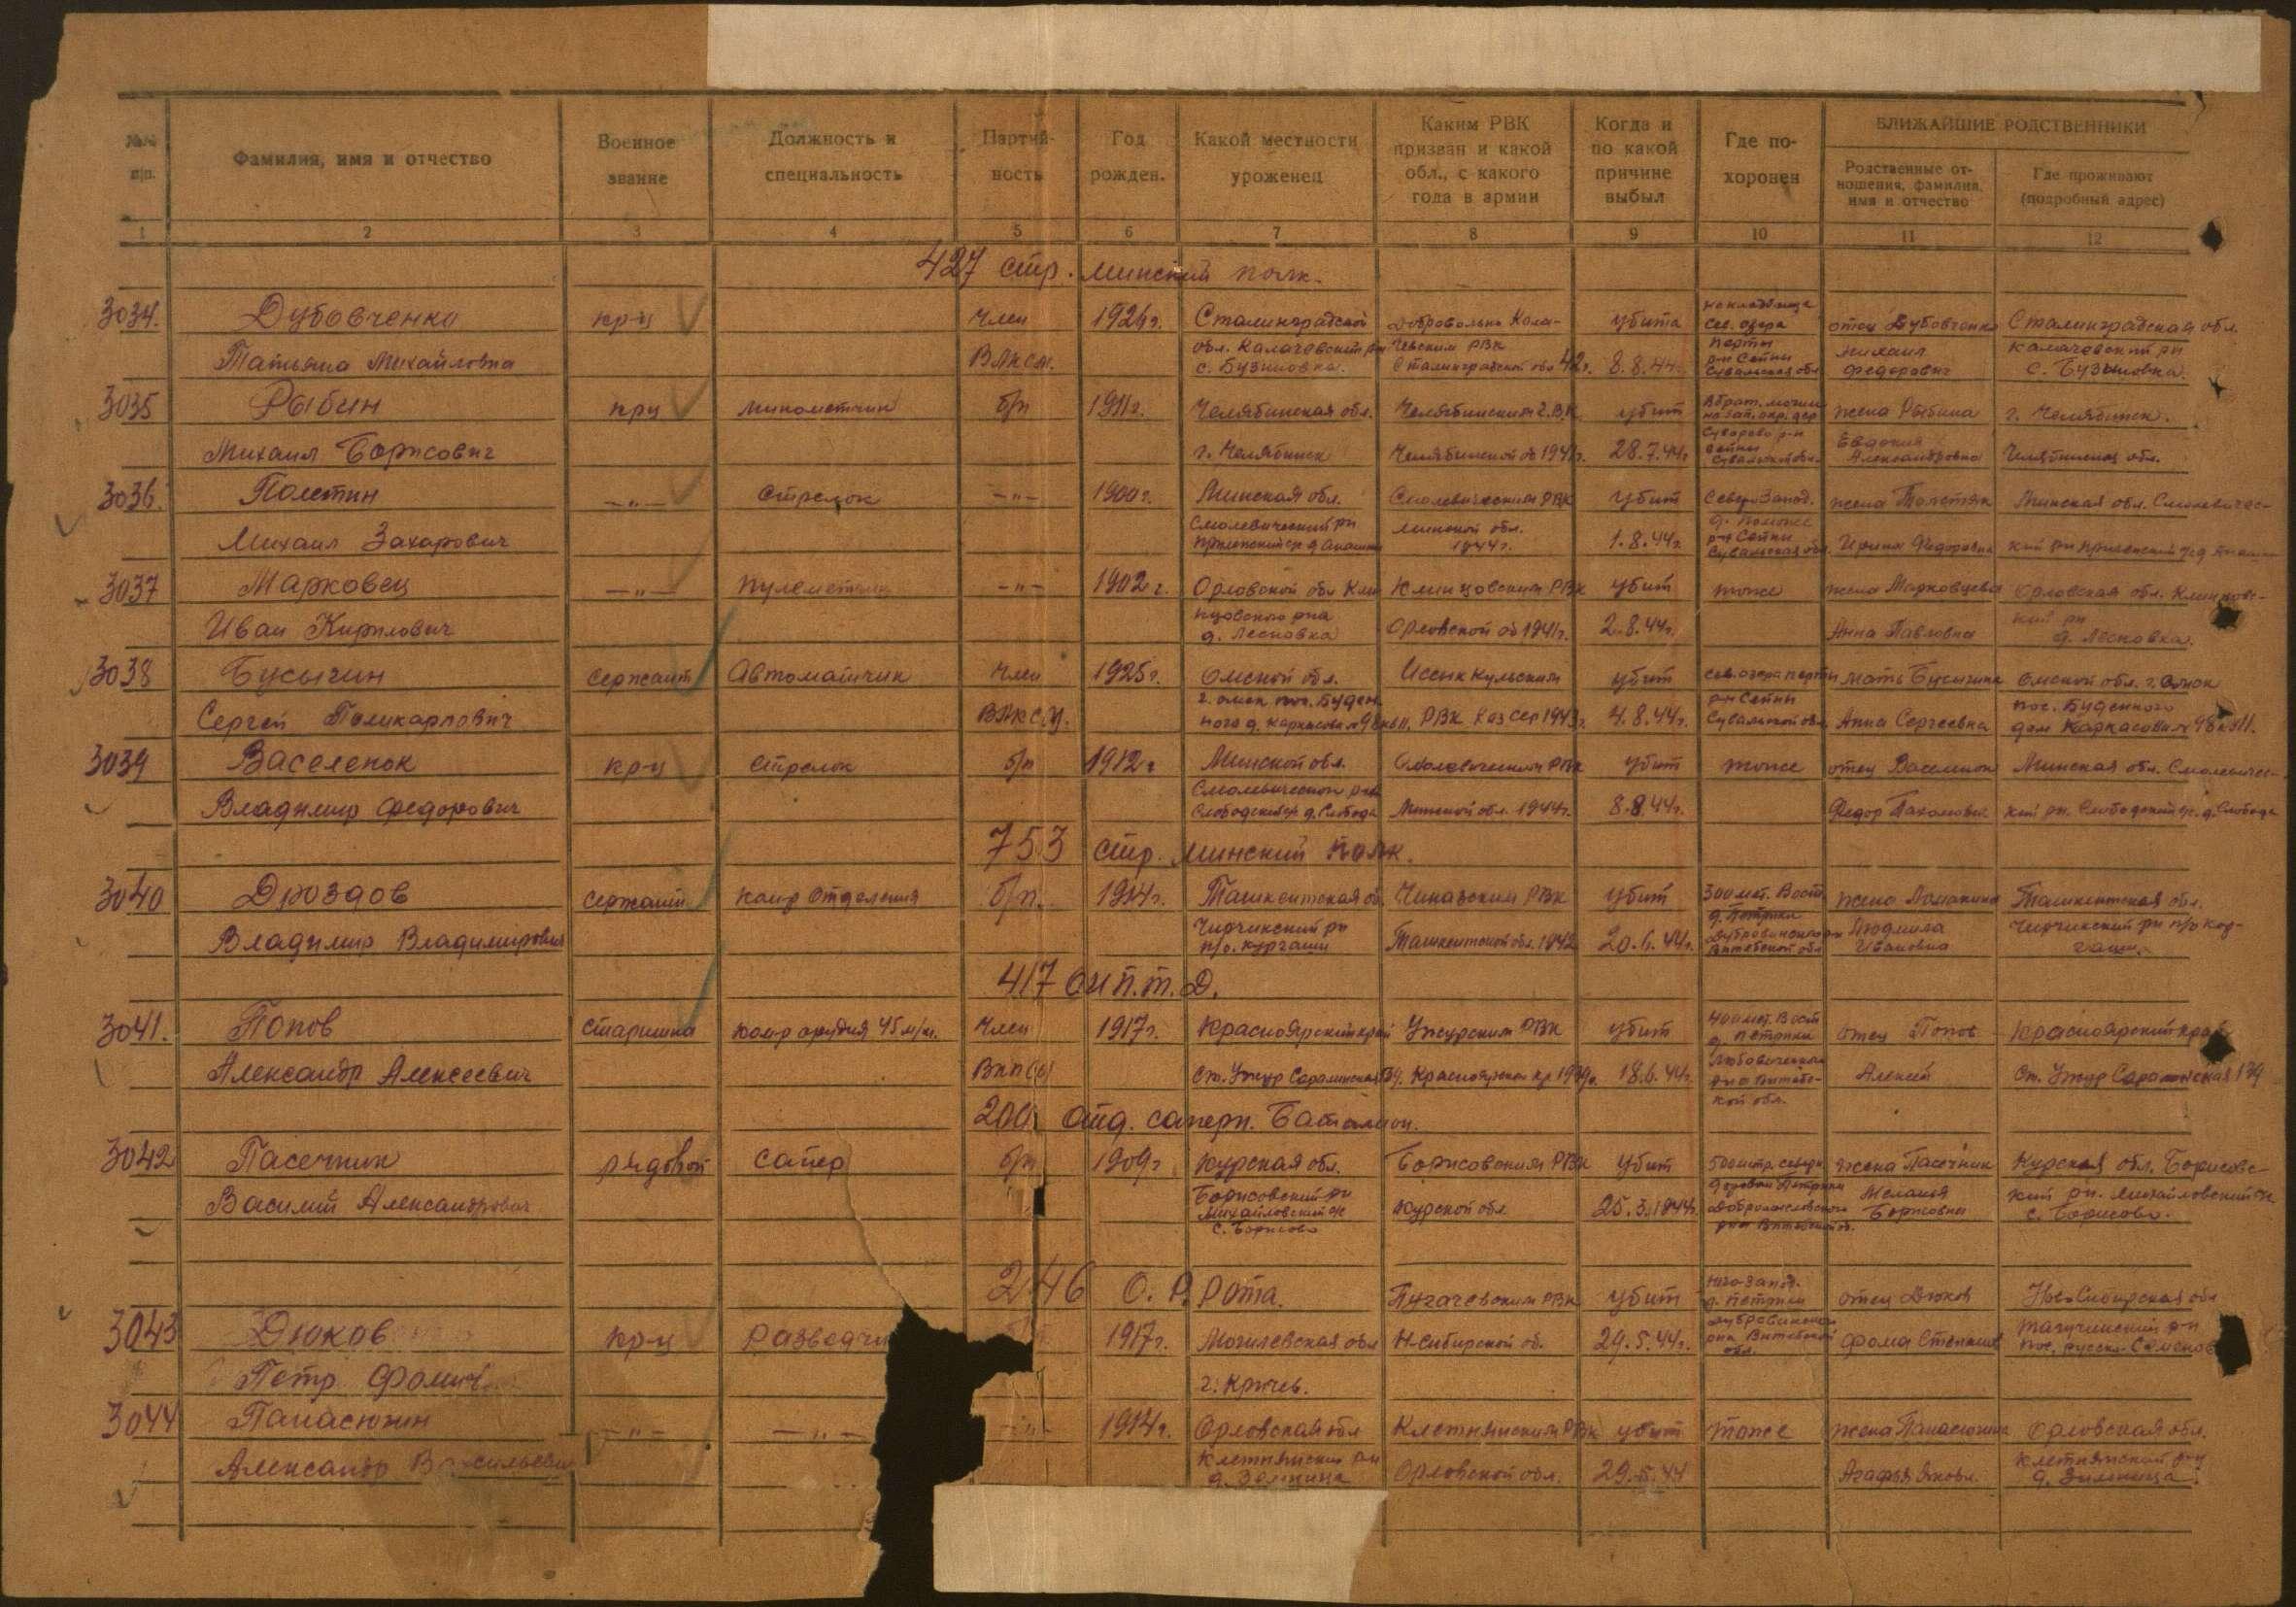 №№ п/п. Фамилия, имя и отчество Военное звание Должность и специальность Партийность Год рожден. Какой местности уроженец Каким РВК призван и какой обл., с какого года в армии Когда и по какой причине выбыл Где похоронен БЛИЖАЙШИЕ РОДСТВЕННИКИ
Родственные отношения, фамилия, имя и отчество Где проживают (подробный адрес)
1 2 3 4 5 6 7 8 9 10 11 12
427 стр. минский полк.
3034. Дубовченко кр-ц член 1926г. Сталинградской добровольно Кала- убита на кладбище сев. озера отец Дубовченко Сталинградская обл.
Татьяна Михайловна ВЛКСМ. обл. Калачевский рн с. Бузиновка. чевским РВК Сталинградской обл 42г. 8.8.44. перты р-н Сейны Сувальская обл Михаил Федорович Калачевский рн с. Бузиновка.
3035 Рыбин крц минометчик б/п 1911г. Челябинская обл. Челябинским Г.В.К. убит В брат. могиле на зап. окр. дер жена Рыбина г. Челябинск.
Михаил Борисович г. Челябинск Челябинской об 1941г. 28.7.44г. р-н Сейны Евдокия Александровна Челябинская обл.
3036. Полетин -"- Стрелок -"- 1900г. Минская обл. Смолевическим РВК убит Северо Запад. жена Минская обл. Смолевичес-
Михаил Захарович Смолевический рн минской обл. 1944г. 1.8.44г. р-н Сейны Сувальская обл. Ирина Федоровна кий рн
3037 Марковец -"- пулеметчик -"- 1902г. Орловской обл Кли Клинцовским РВК убит тоже жена Марковцева Орловская обл. Клинцовс-
Иван Кирилович нцовского рна д. Лесновка Орловской об 1941г. 2.8.44г. Анна Павловна кий рн д. Лесновка.
3038 Бусыгин сержант Автоматчик член 1925г. Омской обл. Иссык кульским убит сев. озера перты мать Бусыгина Омской обл. г. Омск
Сергей Поликарпович ВЛКСМ. г. омск пос. Буден ного РВК Каз ССР 1943г. 4.8.44г. р-н Сейны Сувальской обл. Анна Сергеевна пос. Буденного дом
3039 Васеленок кр-ц стрелок б/п 1912г Минской обл. Смолевическим РВК убит тоже отец Васеленок Минская обл. Смолевичес-
Владимир Федорович Смолевического р-на Слободской с/с д. Слобода Минской обл. 1944г. 8.8.44г. Федор Пахомович кий рн. Слободской с/с. д. Слобода
753 стр. минский полк.
3040 Дроздов сержант комр отделения б/п. 1914г. Ташкентская об. Чиназским РВК убит 300 мет. Вост. жена Ломакина Ташкентская обл.
Владимир Владимирович Чирчикский рн п/о. Кургаши Ташкентской обл. 1942 20.6.44г. д. Петрики Дубровинского рн Витебской обл Людмила Ивановна Чирчикский рн п/о Кур- гаши.
417 ОИП.т.Д.
3041. Попов старшина комр орудия 45 м/м. член 1917г. Красноярский край Ужурским РВК убит 400 мет. Вост д. Петрики отец Попов Красноярский край
Александр Алексеевич ВКП(б) Ст. Ужур Саралинская Красноярского кр 1939г. 18.6.44г. р-на Витебс- кой обл. Алексей Ст. Ужур Саралинская 134
200 отд. саперн. Батальон.
3042 Пасечник рядовой сапер б/п 1909г Курская обл. Борисовским РВК убит 500 метр. северн. жена Пасечник Курская обл. Борисовс-
Василий Александрович Борисовский рн Михайловский с/с с. Борисово Курской обл. 25.3.1944г. деревни Петрики Мелания Борисовна кий рн. Михайловский с/с с. Борисово.
246 О. Р. Рота. Пугачевским РВК убит юго-запад. д. Петрики отец Дюков Ново-Сибирская обл
3043 Дюков кр-ц Разведчи 1917г. Могилевская обл Н-Сибирской об. 29.5.44г. рна Витебской обл. Фома Степанов Тагучинский рн пос. русско-Семенов
Петр Фомич г. Кричев.
3044 Панасюгин -"- -"- -"- 1914г. Орловская обл Клетнянским РВК убит тоже жена Панасюгина Орловская обл.
Александр Васильевич Клетнянский рн Орловской обл. 29.5.44 Агафья Яковл. Клетнянский рн